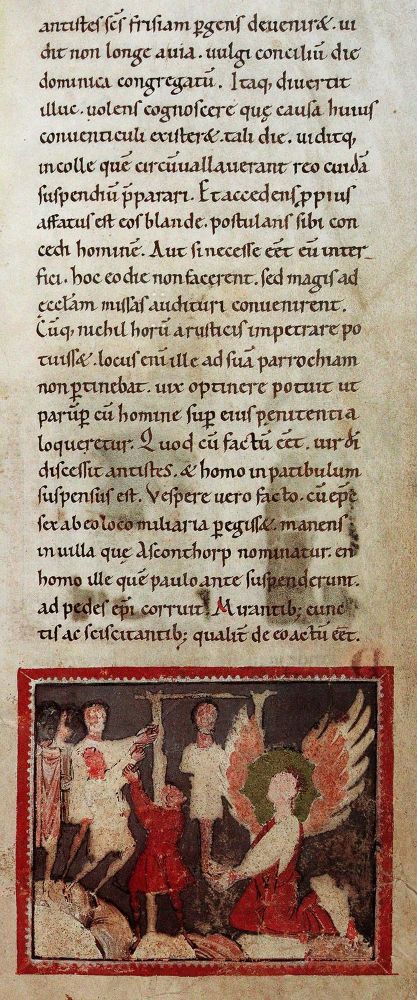 antistes scs frisiam pgens deveniret. vi
dit non longe a via. vulgi conciliũ die
dominica congregatũ. Itaq; divertit
illuc. volens cognoscere quę causa huius
conventiculi existeret. tali die. viditq;
in colle quẽ circũvallaverant reo cuidã
suspendiũ pparari. Et accedens ppius
affatus est eos blande. postulans sibi con
cedi hominẽ. Aut si necesse eẽt eũ inter-
fici. hoc eo die non facerent. sed magis ad
ęcclam missas audituri convenirent.
Cũq; nichil horũ a rusticis impetrare po
tuisset. locus enĩ ille ad suã parrochiam
non ptinebat. vix optinere potuit ut
parũp cũ homine sup eius penitentia
loqueretur. Quod cũ factũ eẽt. vir dĩ
discessit antistes. & homo in patibulum
suspensus est. Vespere vero facto. cũ epc
sex ab eo loco miliaria pegisset. manens
in villa quę Asconthorp nominatur. en
homo ille quẽ paulo ante suspenderunt.
ad pedes epi corruit. Mirantib; cunc
tis ac sciscitantib; qualit de eo actũ eẽt.